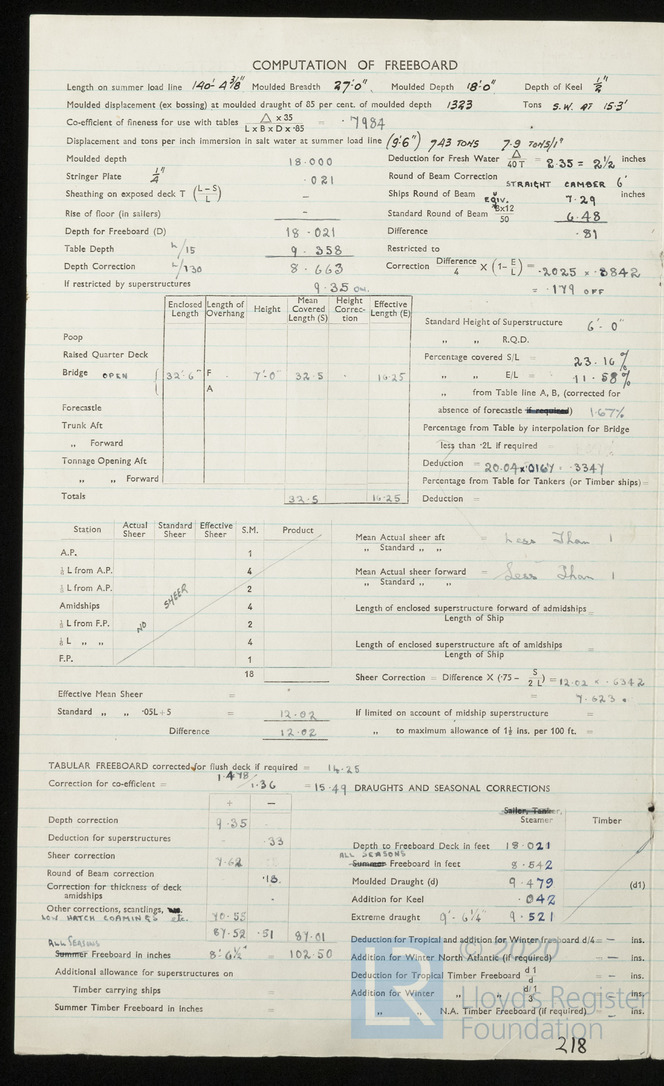 COMPUTATION OF FREEBOARD
Length on summer load line 140'- 4 3/8" Moulded Breadth 27'-0". Moulded Depth 18'-0" Depth of Keel 1/2"
Moulded displacement (ex bossing) at moulded draught of 85 per cent. of moulded depth 1323 Tons S.W. AT 15·3'
Co-efficient of fineness for use with tables △ x 35 / L x B x D x ·85 = ·7984
Displacement and tons per inch immersion in salt water at summer load line (9'·6") 743 TONS 7·9 TONS/1"
Moulded depth 18·000
Stringer Plate 1/4" ·021
Sheathing on exposed deck T (L—S / L) –
Rise of floor (in sailers) –
Depth for Freeboard (D) 18·021
Table Depth L/15 9·358
Depth Correction L/130 8·663
If restricted by superstructures 9·35
Deduction for Fresh Water △ / 40T = 2·35 = 2 1/2 inches
Round of Beam Correction STRAIGHT CAMBER 6"
Ships Round of Beam EQUIV. 7·29 inches
Standard Round of Beam Bx12 / 50 6·48
Difference ·81
Restricted to
Correction Difference / 4 X (1— E / L) = ·2025 x ·8842
= ·179 OFF
Enclosed Length Length of Overhang Height Mean Covered Length (S) Height Correction Effective Length (E)
Poop
Raised Quarter Deck
Bridge OPEN 32'·6" F 7'·0" 32·5 16·25
A
Forecastle
Trunk Aft
„ Forward
Tonnage Opening Aft
„ „ Forward
Totals 32·5 16·25
Standard Height of Superstructure 6'·0"
„ „ R.Q.D.
Percentage covered S/L = 23·16%
„ „ E/L = 11·58%
„ from Table line A, B, (corrected for
absence of forecastle if required) 1·67%
Percentage from Table by interpolation for Bridge
less than ·2L if required =
Deduction = 20·04 x ·0167 = ·3347
Percentage from Table for Tankers (or Timber ships) =
Deduction =
Station Actual Sheer Standard Sheer Effective Sheer S.M. Product
A.P. 1
1/6 L from A.P. 4
1/3 L from A.P. 2
Amidships 4
1/3 L from F.P. 2
1/6 L „ „ 4
F.P. 1
18
NO SHEER
Mean Actual sheer aft / „ Standard „ „ = Less Than 1
Mean Actual sheer forward / „ Standard „ „ = Less Than 1
Length of enclosed superstructure forward of admidships / Length of Ship =
Length of enclosed superstructure aft of amidships / Length of Ship =
Sheer Correction = Difference X (·75 – S / 2 L) = 12·02 x ·6342
= 7·623
Effective Mean Sheer =
Standard „ „ ·05L+5 = 12·02
Difference 12·02
If limited on account of midship superstructure =
„ to maximum allowance of 1½ ins. per 100 ft. =
TABULAR FREEBOARD corrected for flush deck if required = 14·25
Correction for co-efficient = 1·478 / 1·36 = 15·49
+ —
Depth correction 9·35
Deduction for superstructures ·33
Sheer correction 7·62
Round of Beam correction ·18
Correction for thickness of deck amidships
Other corrections, scantlings, etc.
LOW HATCH COAMINGS etc. 70·55
87·52 ·51 87·01
ALL SEASONS
Summer Freeboard in inches 8'·6 1/2" = 102·50
Additional allowance for superstructures on
Timber carrying ships =
Summer Timber Freeboard in inches =
DRAUGHTS AND SEASONAL CORRECTIONS
Sailer, Tanker, Steamer Timber
Depth to Freeboard Deck in feet 18·021
ALL SEASONS
Summer Freeboard in feet 8·542
Moulded Draught (d) 9·479 (d1)
Addition for Keel ·042
Extreme draught 9'·6 1/4" 9·521
Deduction for Tropical and addition for Winter freeboard d/4 = — ins.
Addition for Winter North Atlantic (if required) = — ins.
Deduction for Tropical Timber Freeboard d1 / d = — ins.
Addition for Winter „ „ d1 / 3 = — ins.
„ „ N.A. Timber Freeboard (if required) = — ins.
© 2020
LR
Lloyd's Register
Foundation
218